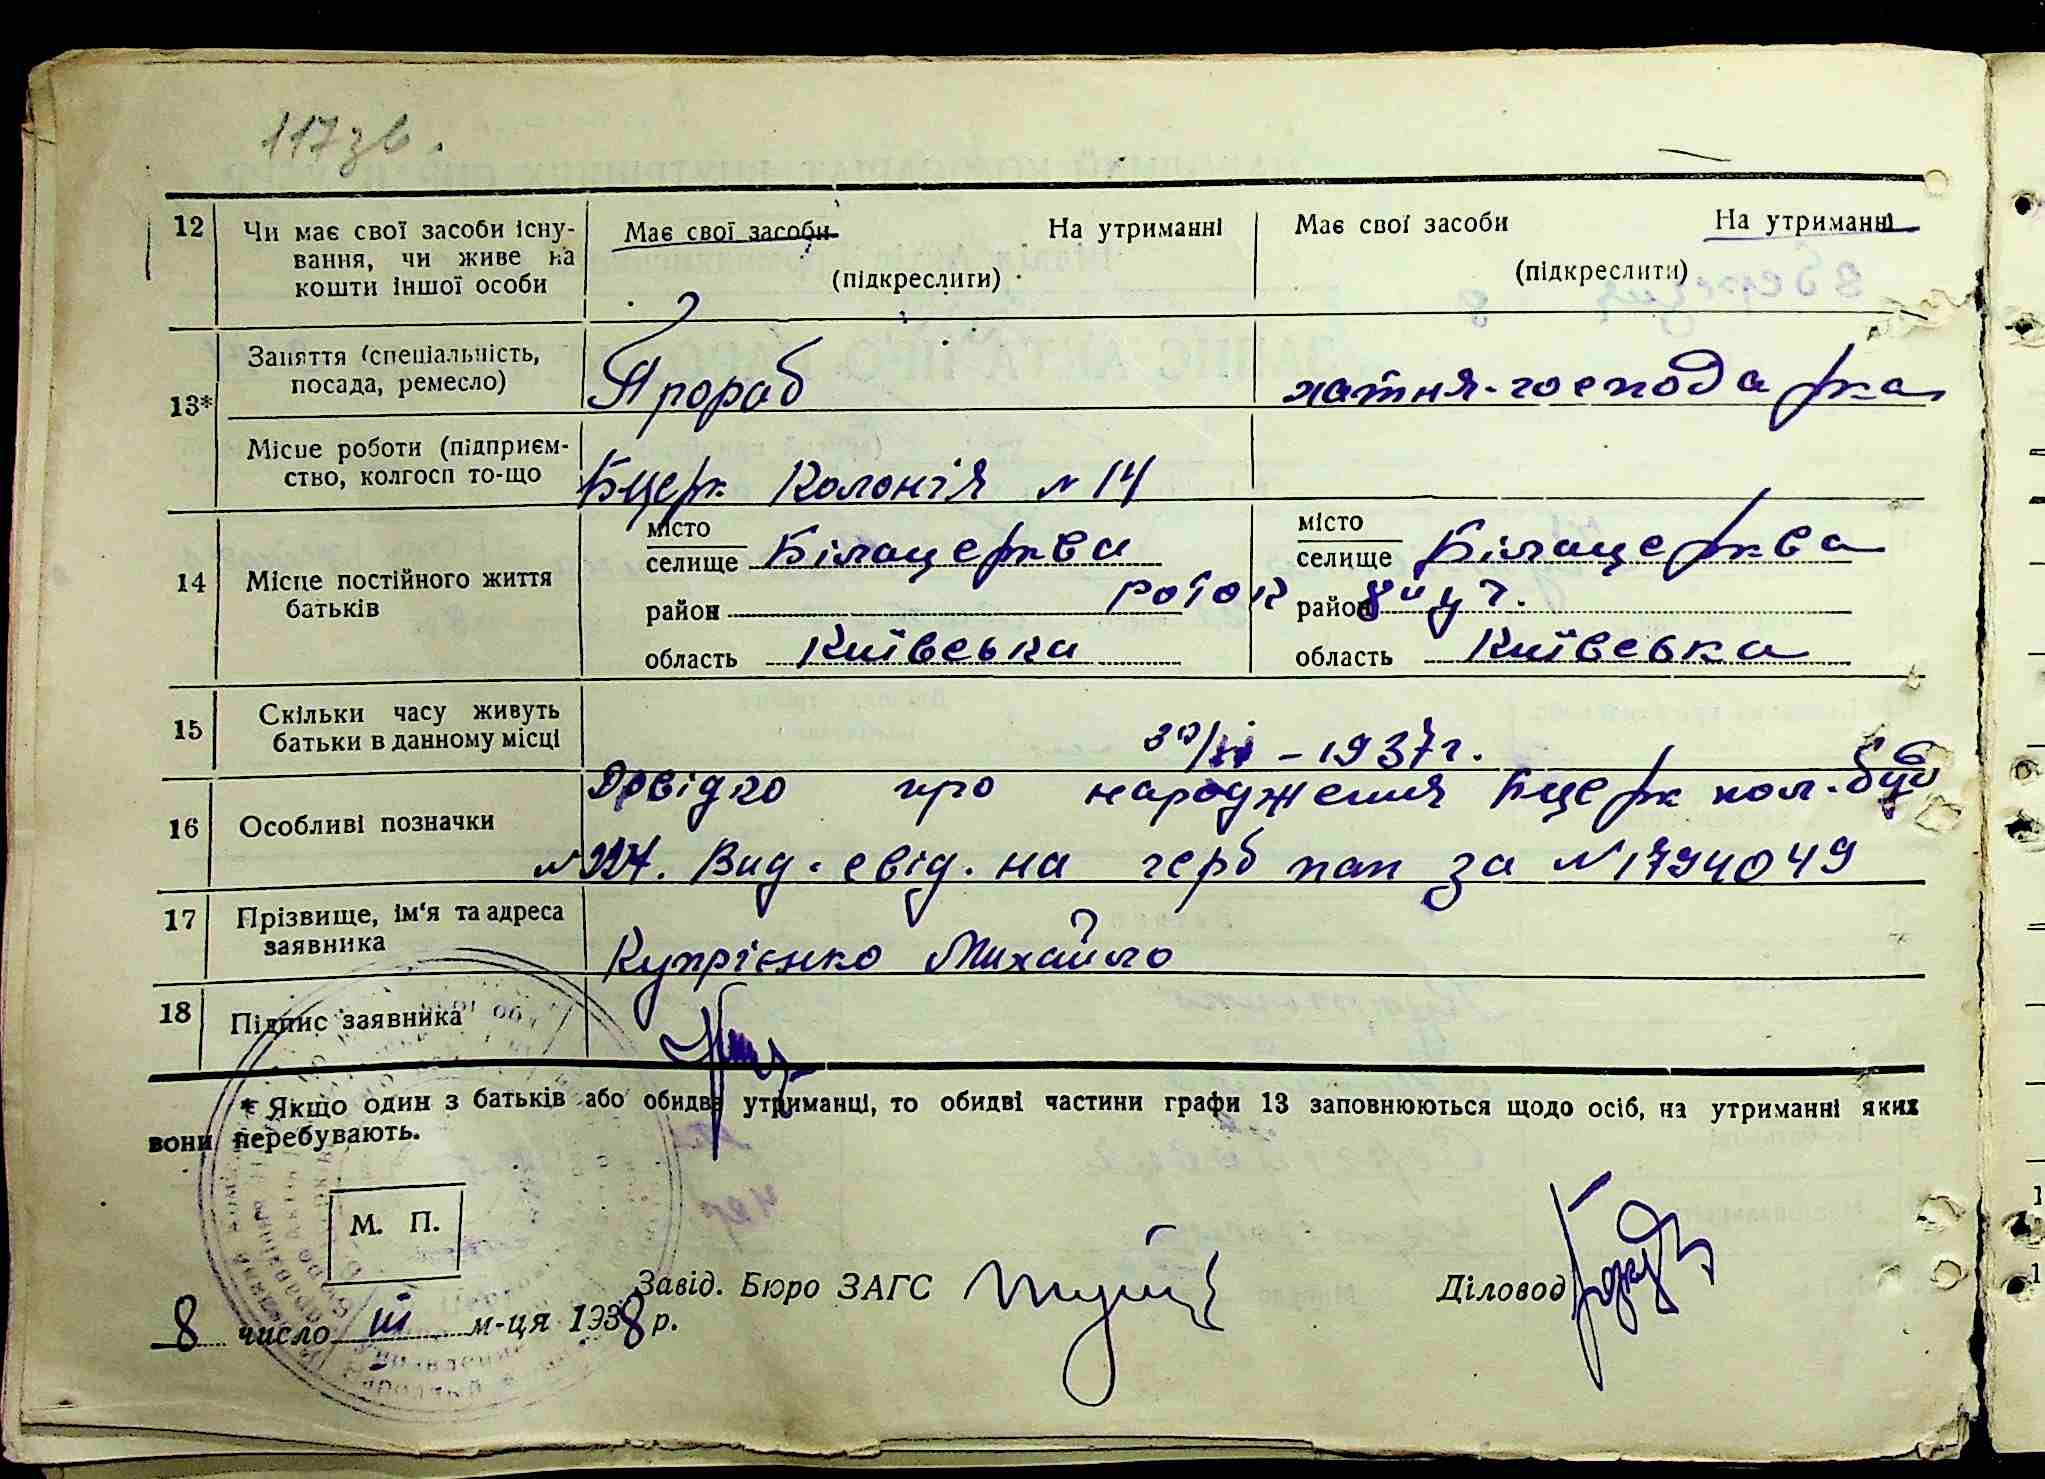 117зв.
12 Чи має свої засоби існу-
вання, чи живе на
кошти іншої особи
Має свої засоби На утриманні
(підкреслити)
Має свої засоби На утриманні
(підкреслити)
13* Заняття (спеціальність,
посада, ремесло)
Прораб
хатня-господарка
Місце роботи (підприєм-
ство, колгосп то-що
Бцерк Колонія №14
14 Місце постійного життя
батьків
місто
селище Білацерква
район
область Київська
місто
селище Білацерква
район
область Київська
Роток
15 Скільки часу живуть
батьки в данному місці
1937г.
16 Особливі позначки
Довідка про народження Бцерк кол.
Вид. свід. на герб пап за №1794049
17 Прізвище, ім'я та адреса
заявника
Купрієнко Михайло
18 Підпис заявника
* Якщо один з батьків або обидва утриманці, то обидві частини графи 13 заповнюються щодо осіб, на утриманні яких
вони перебувають.
М. П.
Завід. Бюро ЗАГС
Діловод
8 число III м-ця 1938 р.